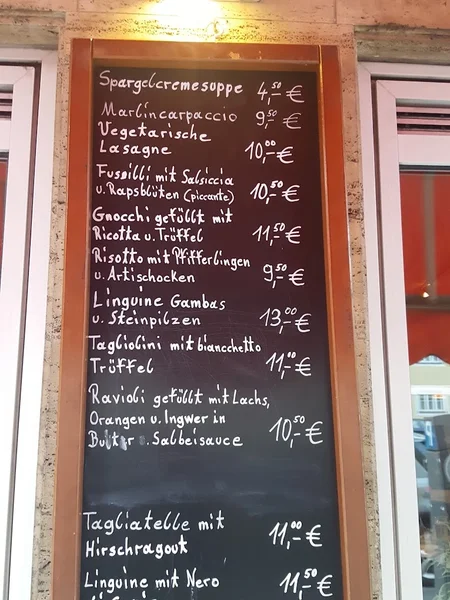 Spargelcremesuppe 4,50 €
Marlincarpaccio 9,50 €
Vegetarische
Lasagne 10,00 €
Fussilli mit Salsiccia
u. Rapsblüten (piccante) 10,50 €
Gnocchi gefüllt mit
Ricotta u. Trüffel 11,50 €
Risotto mit Pfifferlingen
u. Artischocken 9,50 €
Linguine Gambas
u. Steinpilzen 13,00 €
Tagliolini mit biancchetto
Trüffel 11,00 €
Ravioli gefüllt mit Lachs,
Orangen u. Ingwer in
Butter u. Salbeisauce 10,50 €
Tagliatelle mit
Hirschragout 11,00 €
Linguine mit Nero 11,50 €